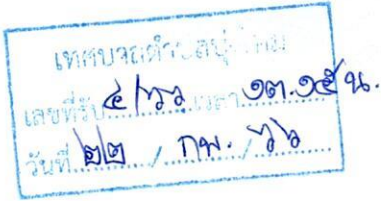 เทศบาลตำบล
เลขที่รับ ๔/๖๖ เวลา ๑๓.๑๕ น.
วันที่ ๒๒ / กพ. ๖๖